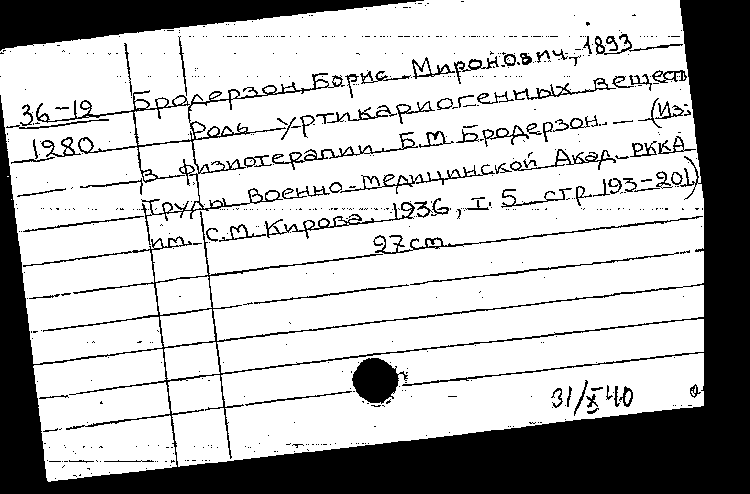 36-19
1280.
Бродерзон, Борис Миронович, 1893
Роль уртикариогенных веществ
в физиотерапии. Б.М. Бродерзон. (Из:
Труды Военно-медицинской Акад. РККА
им. С.М. Кирова. 1936, т. 5 стр. 193-201)
27 cm.
31/X 40